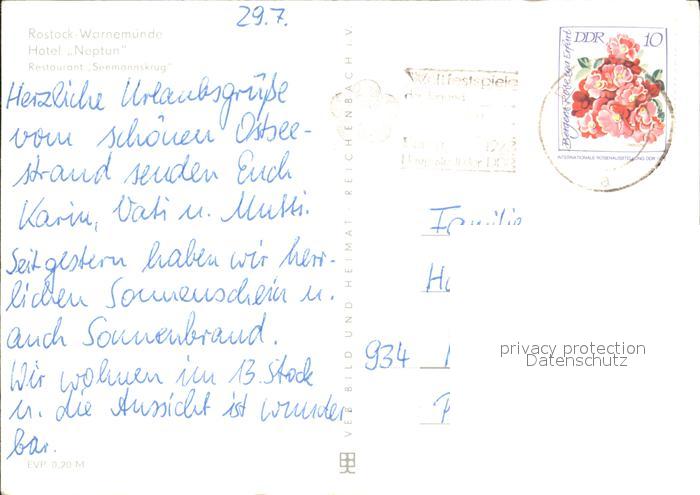 29.7.
Rostock-Warnemünde
Hotel „Neptun“
Restaurant „Seemannskrug“
Herzliche Urlaubsgrüße
vom schönen Ostsee-
strand senden Euch
Karin, Vati u. Mutti.
Seit gestern haben wir herr-
lichen Sonnenschein u.
auch Sonnenbrand.
Wir wohnen im 13. Stock
u. die Aussicht ist wunder
bar.
EVP 0,20 M
VEB BILD UND HEIMAT REICHENBACH i. V.
Weltfestspiele
der
DDR 10
INTERNATIONALE ROSENAUSSTELLUNG DDR
a
Familie
934
privacy protection
Datenschutz